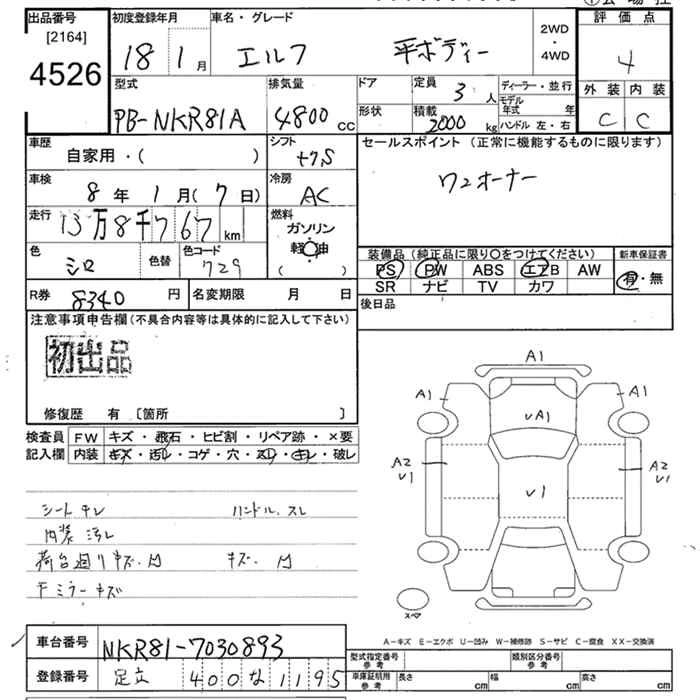 出品番号 初度登録年月 車名・グレード 2WD 評価点
[2164] 18 1月 エルフ 平ボディー ・ 4
4526 4WD
型式 排気量 ドア 定員 3人 ディーラー・並行 外装 内装
PB-NKR81A 4800cc 形状 積載 2000kg モデル年式 年 C C
ハンドル 左・右
車歴 シフト セールスポイント (正常に機能するものに限ります)
自家用・( ) +7S
車検 冷房 ワンオーナー
8年1月(7日) AC
走行 燃料
13万8千767km ガソリン
色 色替 色コード 軽油 装備品 (純正品に限り○をつけてください) 新車保証書
シロ 729 ( ) PS PW ABS エアB AW 有・無
SR ナビ TV カワ
R券 8340円 名変期限 月 日 後日品
注意事項申告欄(不具合内容等は具体的に記入して下さい)
初出品
修復歴 有 [箇所 ]
検査員 FW キズ・飛石・ヒビ割・リペア跡・×要
記入欄 内装 キズ・汚レ・コゲ・穴・スレ・キレ・破レ
A1
A1 A1
VA1
A2 A2
V1 V1
V1
シートキレ ハンドル.スレ
内装汚レ
荷台廻りキズ.凹 キズ.凹
スペア
車台番号 NKR81-7030893
A-キズ E-エクボ U-凹み W-補修跡 S-サビ C-腐食 XX-交換済
型式指定番号 参考 類別区分番号 参考
登録番号 足立 400な1195
車庫証明用 参考 長さ cm 幅 cm 高さ cm